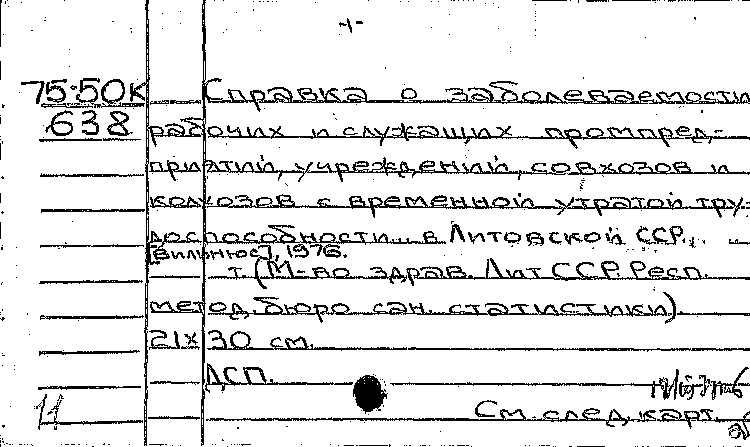 75-50К Справка о заболеваемости
638 рабочих и служащих промпред-
приятий, учреждений, совхозов и
колхозов с временной утратой тру-
доспособности... в Литовской ССР.
[Вильнюс], 1976.
т. (М-во здрав. Лит ССР. Респ.
метод. бюро сан. статистики).
21х30 см.
ДСП.
11 См. след. карт.